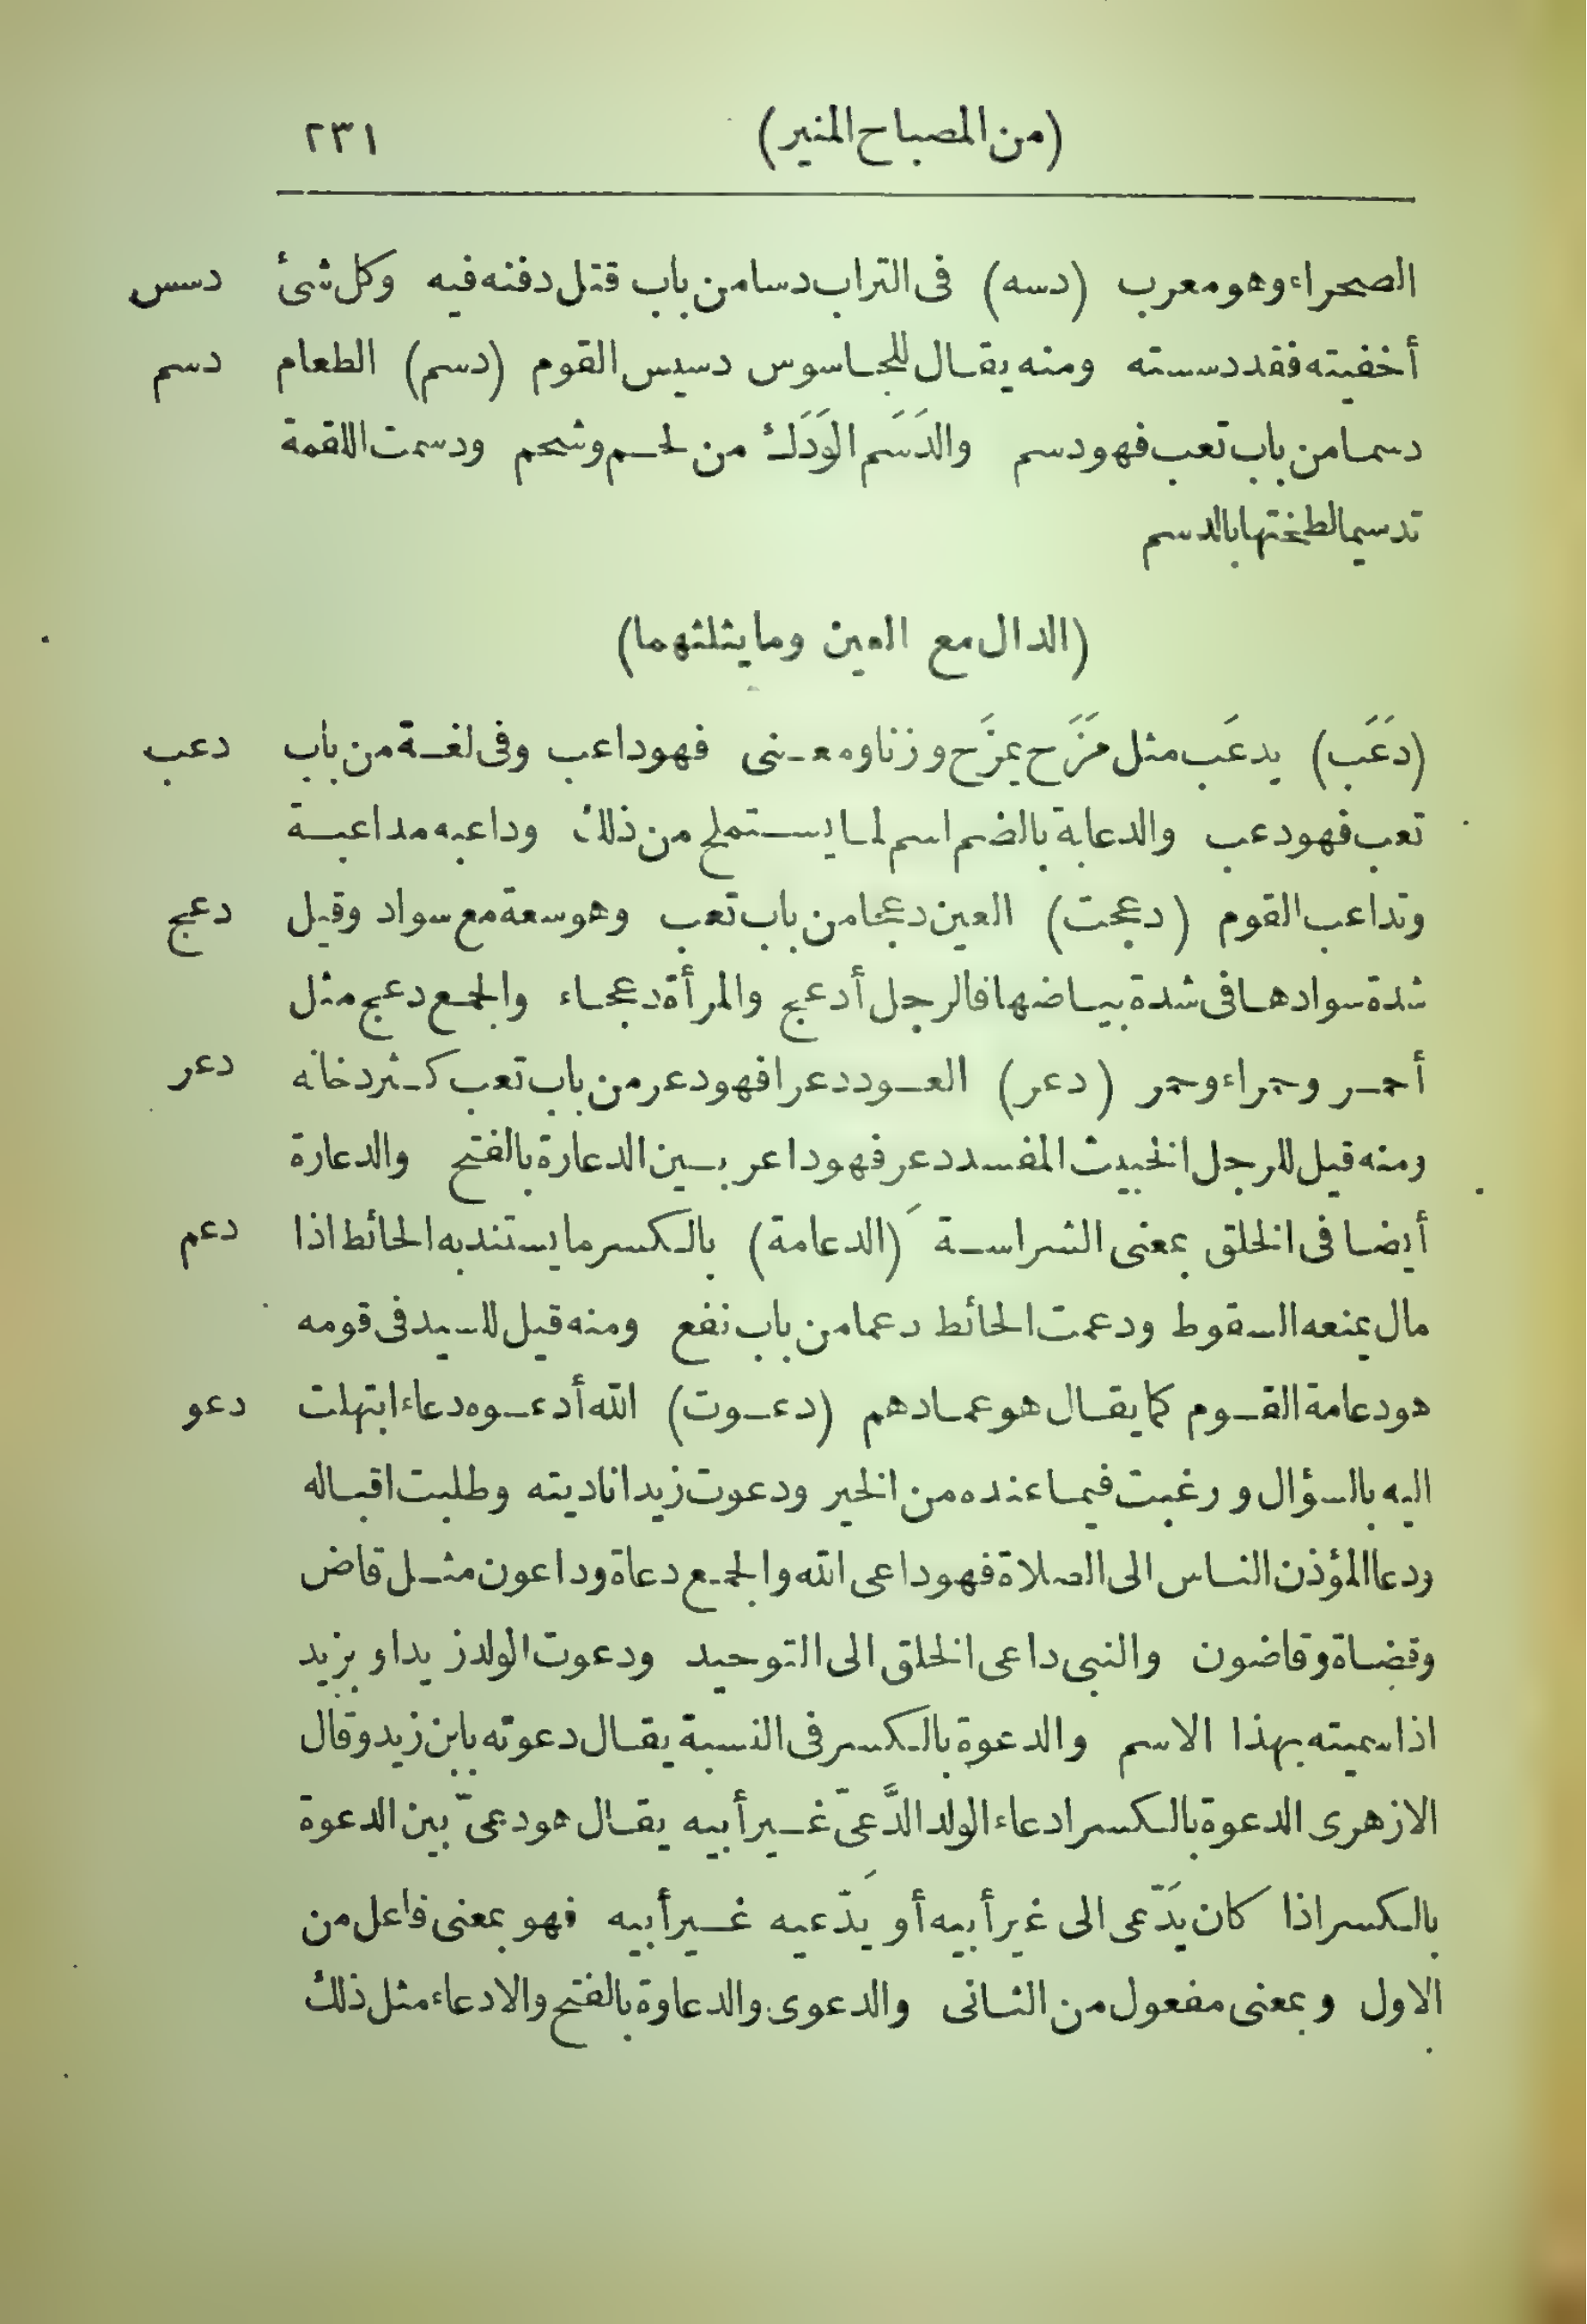 (من المصباح المنير) ٢٣١
الصحراء وهو معرب (دسه) فى التراب دسا من باب قتل دفنه فيه وكل شئ دسس
أخفيته فقد دسسته ومنه يقال للجاسوس دسيس القوم (دسم) الطعام دسم
دسما من باب تعب فهو دسم والدَسَم الوَدَك من لحم وشحم ودسمت اللقمة
تدسيما لطختها بالدسم
(الدال مع العين وما يثلثهما)
(دَعَب) يدعَب مثل مَزَح يمزَح وزنا ومعنى فهو داعب وفى لغة من باب دعب
تعب فهو دعب والدعابة بالضم اسم لما يستملح من ذلك وداعبه مداعبة
وتداعب القوم (دعجت) العين دعجا من باب تعب وهو سعة مع سواد وقيل دعج
شدة سوادها فى شدة بياضها فالرجل أدعج والمرأة دعجاء والجمع دعج مثل
أحمر وحمراء وحمر (دعر) العود دعرا فهو دعر من باب تعب كثر دخانه دعر
ومنه قيل للرجل الخبيث المفسد دعر فهو داعر بين الدعارة بالفتح والدعارة
أيضا فى الخلق بمعنى الشراسة (الدعامة) بالكسر ما يستند به الحائط اذا دعم
مال يمنعه السقوط ودعمت الحائط دعما من باب نفع ومنه قيل للسيد فى قومه
هو دعامة القوم كما يقال هو عمادهم (دعوت) الله أدعوه دعاء ابتهلت دعو
اليه بالسؤال ورغبت فيما عنده من الخير ودعوت زيدا ناديته وطلبت اقباله
ودعا المؤذن الناس الى الصلاة فهو داعى الله والجمع دعاة وداعون مثل قاض
وقضاة وقاضون والنبى داعى الخلق الى التوحيد ودعوت الولد زيدا وبزيد
اذا سميته بهذا الاسم والدعوة بالكسر فى النسبة يقال دعوته بابن زيد وقال
الازهرى الدعوة بالكسر ادعاء الولد الدَّعىّ غير أبيه يقال هو دعىّ بين الدعوة
بالكسر اذا كان يَدّعى الى غير أبيه أو يَدّعيه غير أبيه فهو بمعنى فاعل من
الاول وبمعنى مفعول من الثانى والدعوى والدعاوة بالفتح والادعاء مثل ذلك